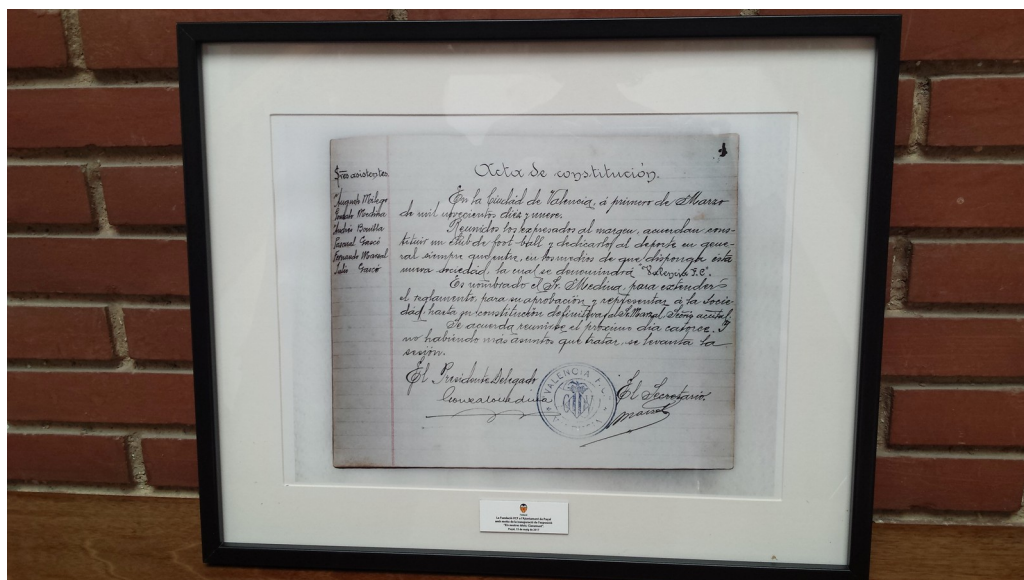 1
Acta de constitución.
Sres asistentes.
Augusto Milego
Gonzalo Medina
Andrés Bonilla
Pascual Gascó
Fernando Marzal
Julio Gascó
En la Ciudad de Valencia, á primero de Marzo
de mil novecientos diez y nueve.
Reunidos los expresados al margen, acuerdan cons-
tituir un club de foot-ball y dedicarlo al deporte en gene-
ral siempre que entre, en los medios de que disponga esta
nueva sociedad, la cual se denominará "Valencia F.C".
Es nombrado el Sr. Medina, para extender
el reglamento, para su aprobación y representar á la socie-
dad, hasta su constitución definitiva, el Sr Marzal
Se acuerda reunirse el próximo día catorce. Y
no habiendo más asuntos que tratar, se levanta la
sesión.
El Presidente Delegado
Gonzalo Medina
VALENCIA F.C.
VALENCIA
El Secretario.
Marzal